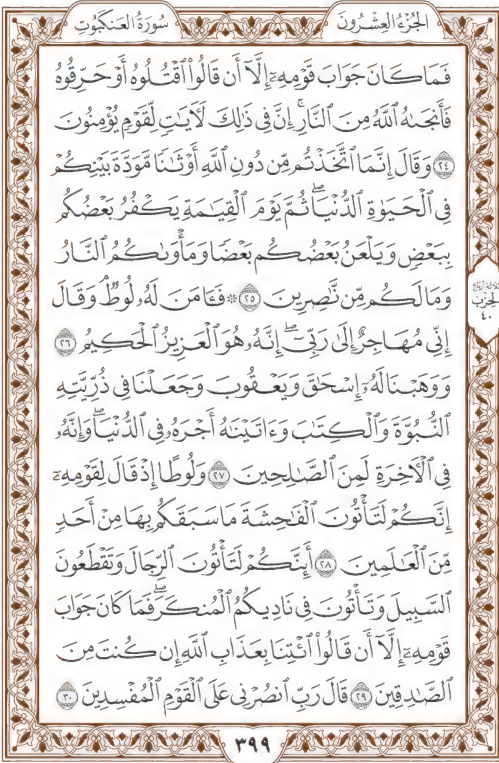 سُورَةُ العَنكَبُوتِ
الجُزْءُ العِشْرُونَ
فَمَا كَانَ جَوَابَ قَوْمِهِۦٓ إِلَّآ أَن قَالُوا۟ ٱقْتُلُوهُ أَوْ حَرِّقُوهُ
فَأَنجَىٰهُ ٱللَّهُ مِنَ ٱلنَّارِ ۚ إِنَّ فِى ذَٰلِكَ لَـَٔايَٰتٍ لِّقَوْمٍ يُؤْمِنُونَ
٢٤ وَقَالَ إِنَّمَا ٱتَّخَذْتُم مِّن دُونِ ٱللَّهِ أَوْثَٰنًا مَّوَدَّةَ بَيْنِكُمْ
فِى ٱلْحَيَوٰةِ ٱلدُّنْيَا ۖ ثُمَّ يَوْمَ ٱلْقِيَٰمَةِ يَكْفُرُ بَعْضُكُم
بِبَعْضٍ وَيَلْعَنُ بَعْضُكُم بَعْضًا وَمَأْوَىٰكُمُ ٱلنَّارُ
وَمَا لَكُم مِّن نَّٰصِرِينَ ٢٥ ۞ فَـَٔامَنَ لَهُۥ لُوطٌ ۘ وَقَالَ
إِنِّى مُهَاجِرٌ إِلَىٰ رَبِّىٓ ۖ إِنَّهُۥ هُوَ ٱلْعَزِيزُ ٱلْحَكِيمُ ٢٦
وَوَهَبْنَا لَهُۥٓ إِسْحَٰقَ وَيَعْقُوبَ وَجَعَلْنَا فِى ذُرِّيَّتِهِ
ٱلنُّبُوَّةَ وَٱلْكِتَٰبَ وَءَاتَيْنَٰهُ أَجْرَهُۥ فِى ٱلدُّنْيَا ۖ وَإِنَّهُۥ
فِى ٱلْـَٔاخِرَةِ لَمِنَ ٱلصَّٰلِحِينَ ٢٧ وَلُوطًا إِذْ قَالَ لِقَوْمِهِۦٓ
إِنَّكُمْ لَتَأْتُونَ ٱلْفَٰحِشَةَ مَا سَبَقَكُم بِهَا مِنْ أَحَدٍ
مِّنَ ٱلْعَٰلَمِينَ ٢٨ أَئِنَّكُمْ لَتَأْتُونَ ٱلرِّجَالَ وَتَقْطَعُونَ
ٱلسَّبِيلَ وَتَأْتُونَ فِى نَادِيكُمُ ٱلْمُنكَرَ ۖ فَمَا كَانَ جَوَابَ
قَوْمِهِۦٓ إِلَّآ أَن قَالُوا۟ ٱئْتِنَا بِعَذَابِ ٱللَّهِ إِن كُنتَ مِنَ
ٱلصَّٰدِقِينَ ٢٩ قَالَ رَبِّ ٱنصُرْنِى عَلَى ٱلْقَوْمِ ٱلْمُفْسِدِينَ ٣٠
ثلاثة أرباع
الحزب
٤٠
٣٩٩